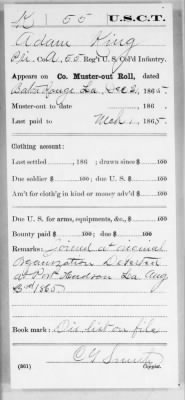 K | 55 | U.S.C.T.
Adam King
Pvt., Co. A, 55 Reg't U. S. Col'd Infantry.
Appears on Co. Muster-out Roll, dated
Baton Rouge La, Dec 2, 1865.
Muster-out to date , 186 .
Last paid to Mch 1, 1865.
Clothing account:
Last settled , 186 ; drawn since $ 100
Due soldier $ 100; due U. S. $ 100
Am't for cloth'g in kind or money adv'd $ 100
Due U. S. for arms, equipments, &c., $ 100
Bounty paid $ 100; due $ 100
Remarks: Joined at original
Organization Deserted
at Port Hudson La Aug
3rd 1865
Book mark: Dis. list on file
C G Smith
(861) Copyist.